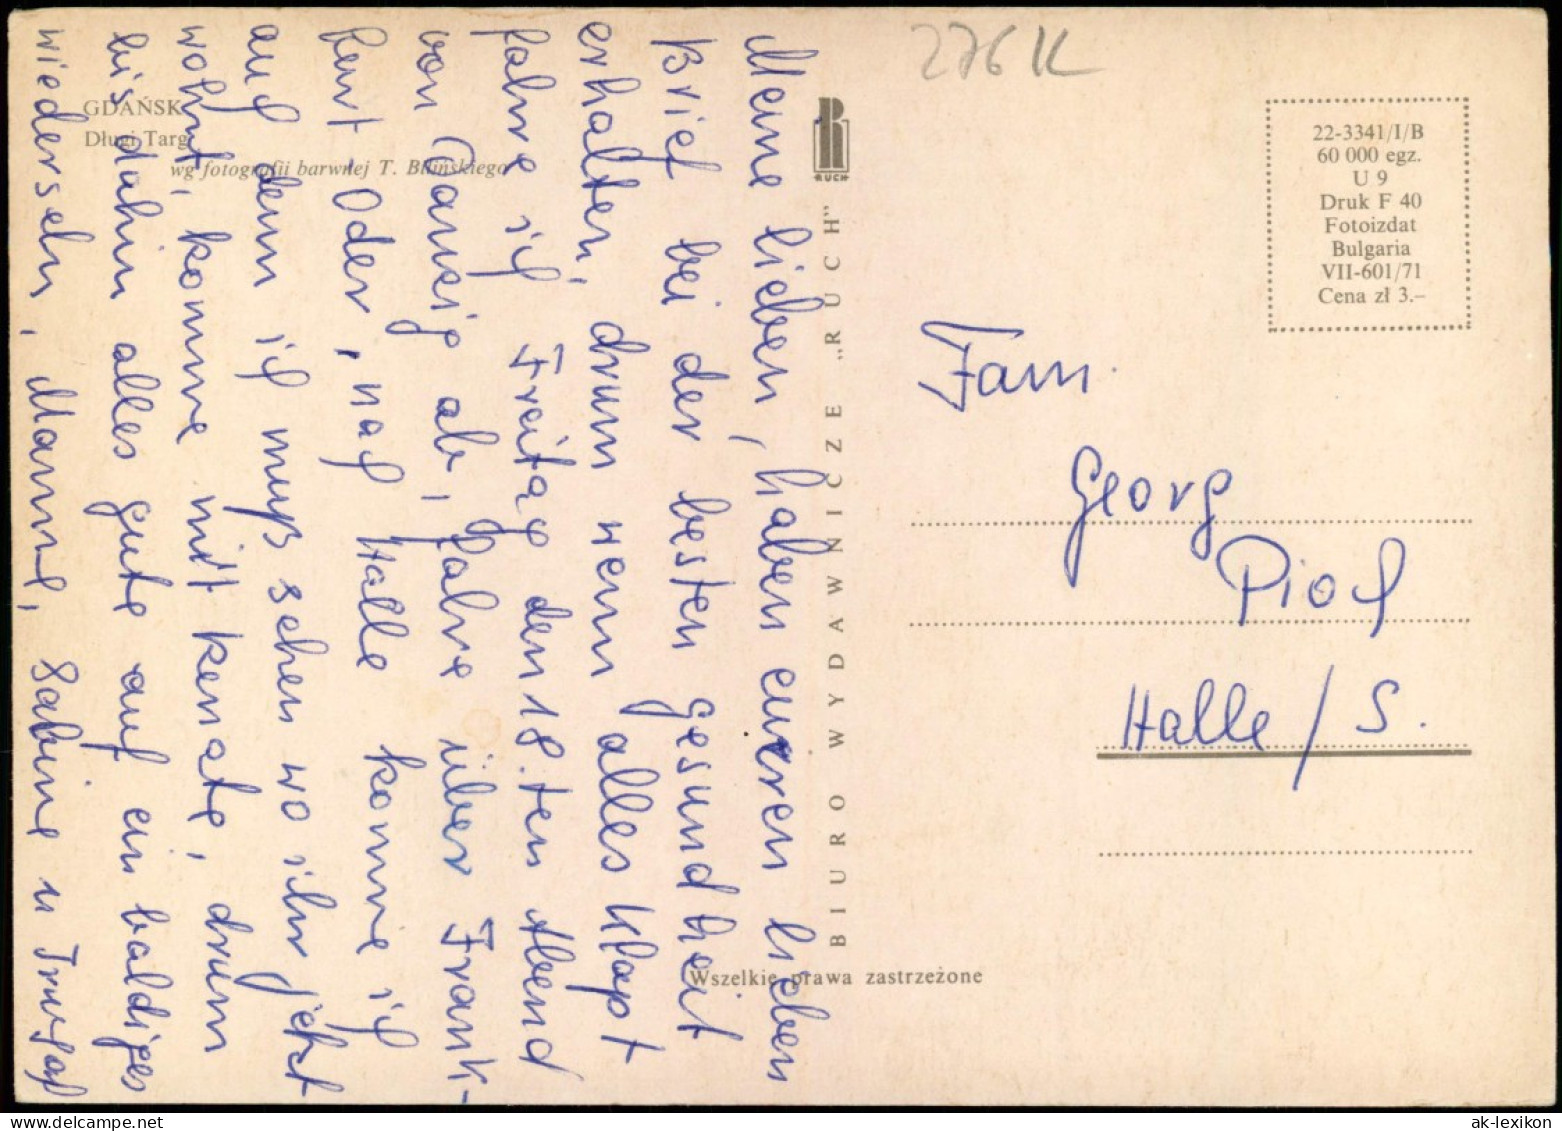 276 K
GDAŃSK
Długi Targ
wg fotografii barwnej T. Bilińskiego
RUCH
BIURO WYDAWNICZE „RUCH"
Wszelkie prawa zastrzeżone
22-3341/I/B
60 000 egz.
U 9
Druk F 40
Fotoizdat
Bulgaria
VII-601/71
Cena zł 3.–
Meine lieben, haben eueren lieben
Brief bei der besten gesundheit
erhalten, drum wenn alles klapt
fahre ich Freitag den 18.ten Abend
von Danzig ab, fahre über Frank-
furt, Oder, nach Halle komme ich
auch denn ich muß sehen wo ihr jetzt
wohnt, komme mit Renate, drum
bis dahin alles gute auf ein baldiges
wiedersehn, Manne, Sabine u
Fam.
Georg
Pioch
Halle / S.
ak-lexikon